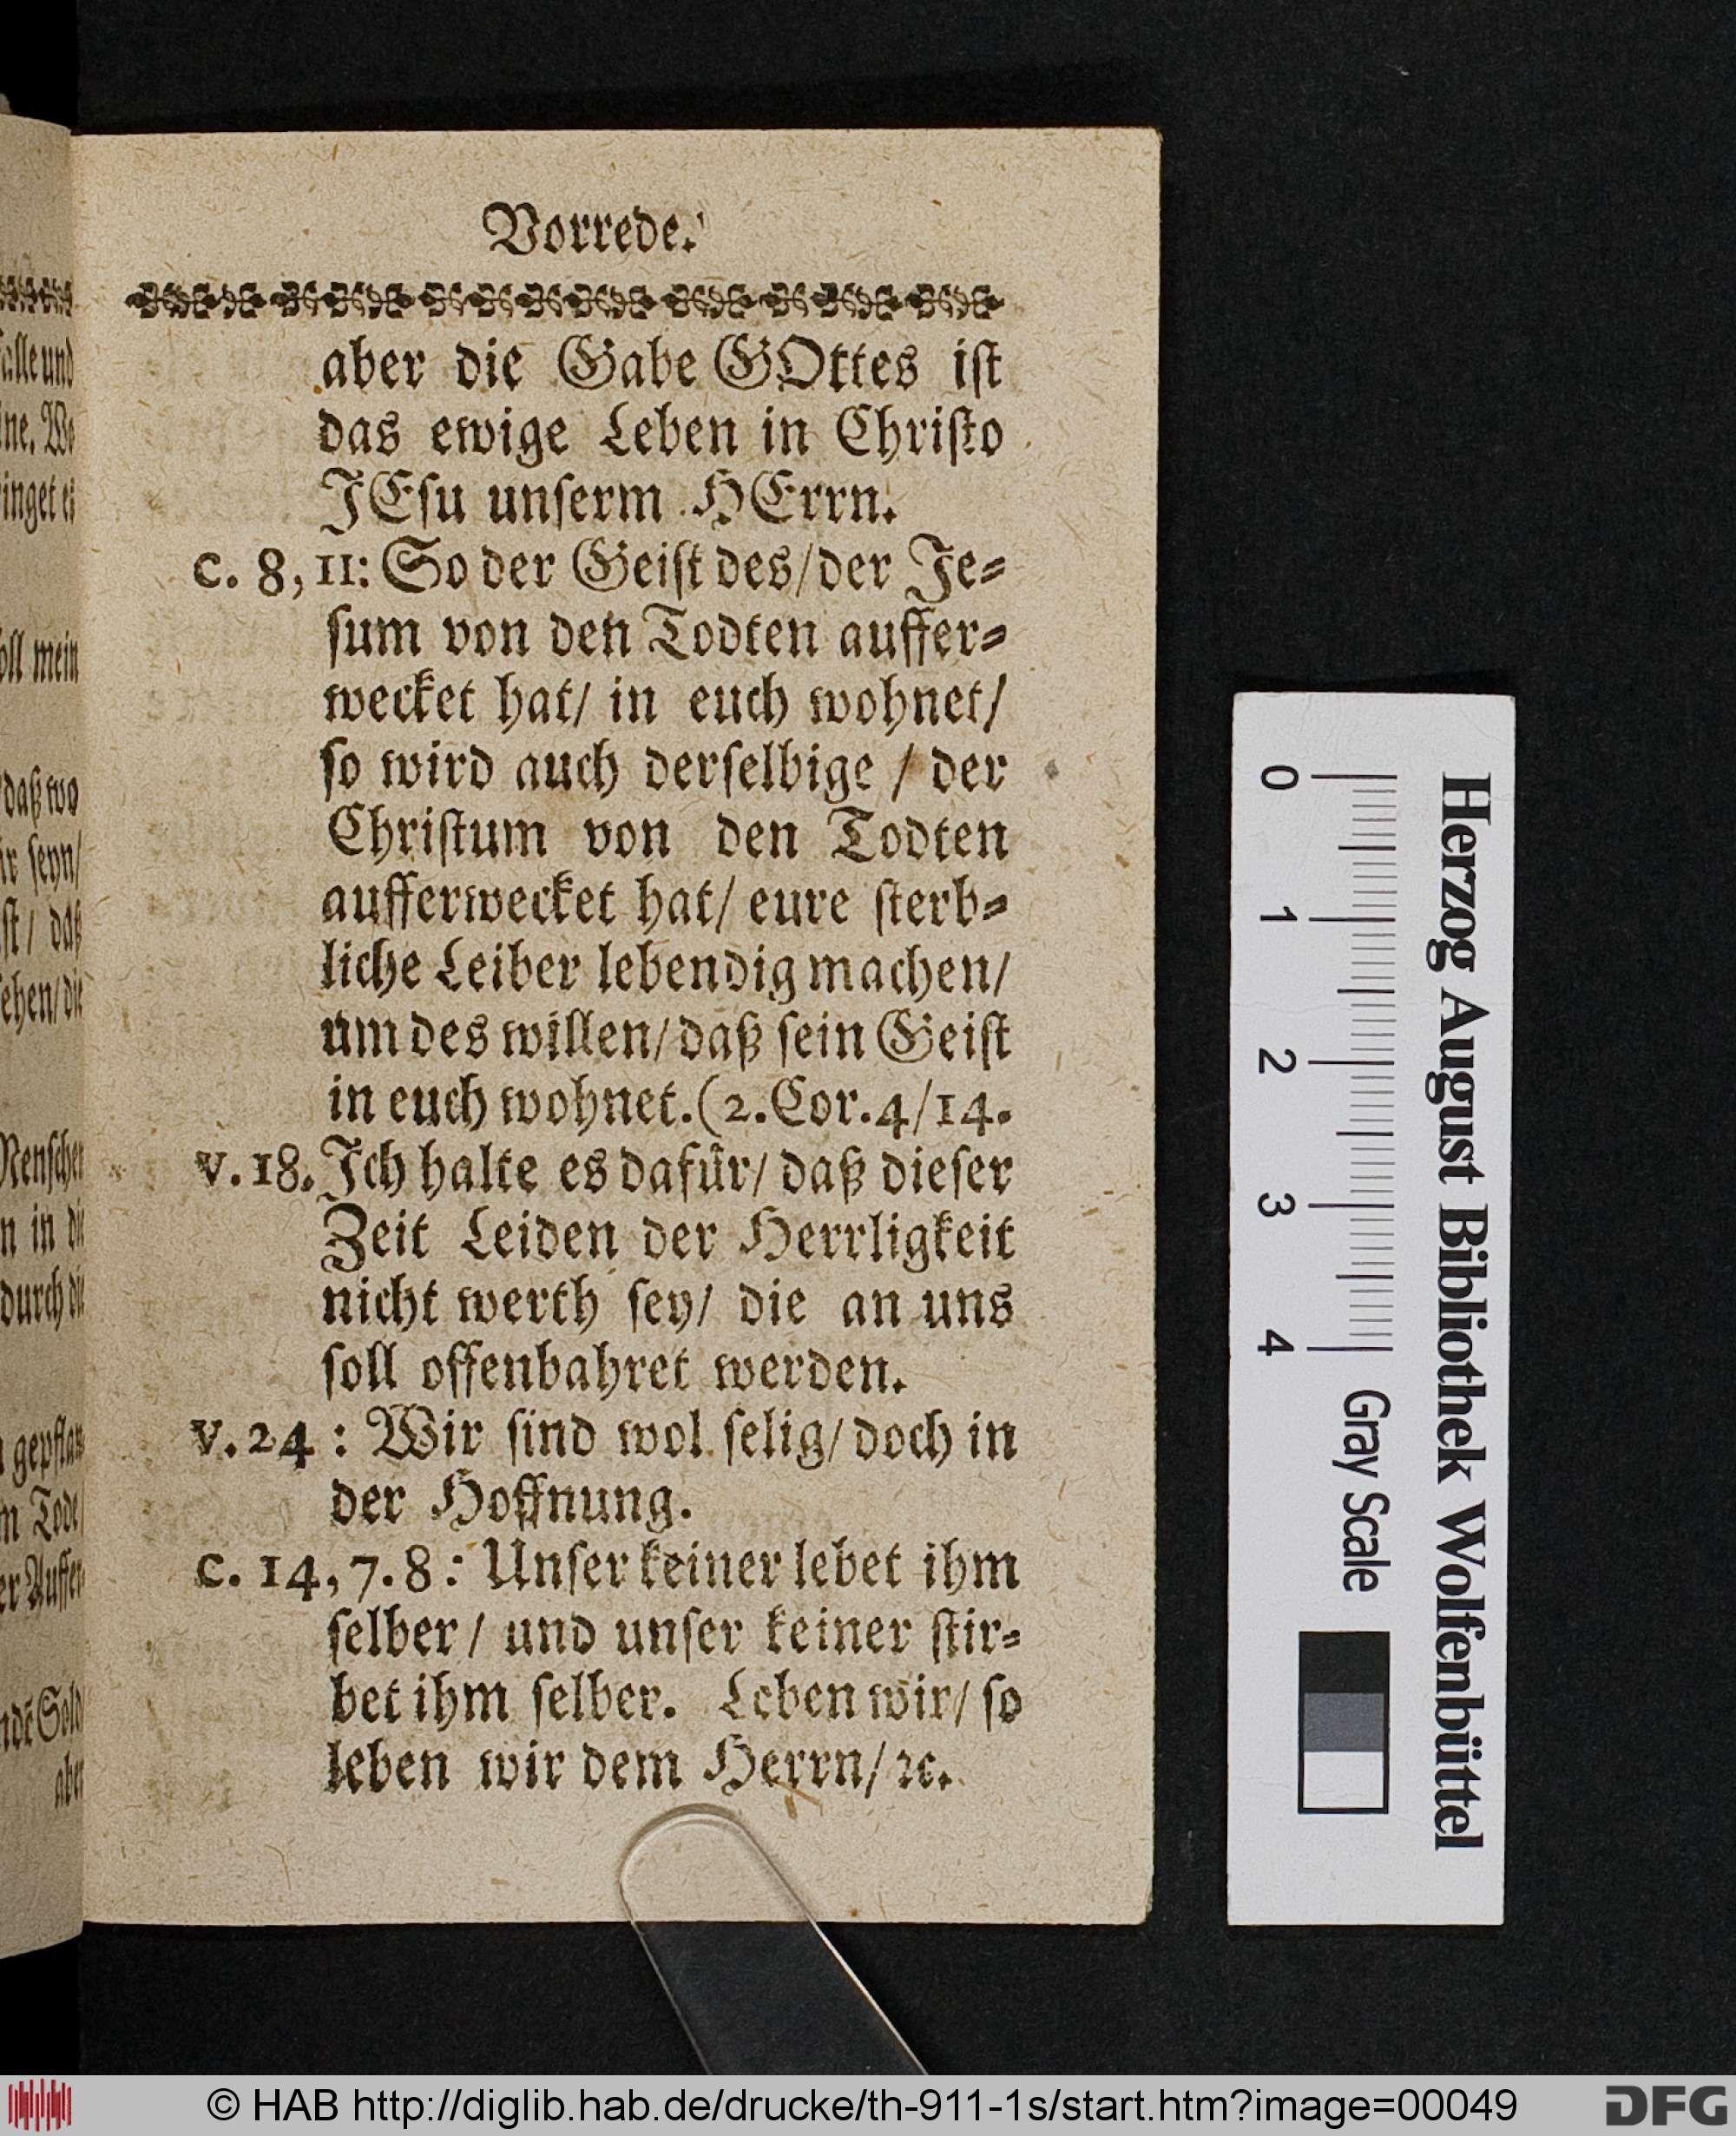 Vorrede.
aber die Gabe GOttes iſt
das ewige Leben in Chriſto
JEſu unſerm HErrn.
c. 8, 11: So der Geiſt des/der Je⸗
ſum von den Todten auffer⸗
wecket hat/ in euch wohnet/
ſo wird auch derſelbige / der
Chriſtum von den Todten
aufferwecket hat/ eure ſterb⸗
liche Leiber lebendig machen/
um des willen/ daß ſein Geiſt
in euch wohnet. (2. Cor. 4/14.
v. 18. Ich halte es dafuͤr/ daß dieſer
Zeit Leiden der Herrligkeit
nicht werth ſey/ die an uns
ſoll offenbahret werden.
v. 24 : Wir ſind wol ſelig/ doch in
der Hoffnung.
c. 14, 7. 8 : Unſer keiner lebet ihm
ſelber / und unſer keiner ſtir⸗
bet ihm ſelber. Leben wir/ ſo
leben wir dem Herrn/ ꝛc.
alle und
ne. Wo
inget es
oll mein
daß wo
ir ſeyn/
ſt / daß
ehen/ die
Menſchen
n in die
durch die
gepflan
m Tode/
er Auffer
Sold
aber
Herzog August Bibliothek Wolfenbüttel
0 1 2 3 4 Gray Scale
© HAB http://diglib.hab.de/drucke/th-911-1s/start.htm?image=00049
DFG